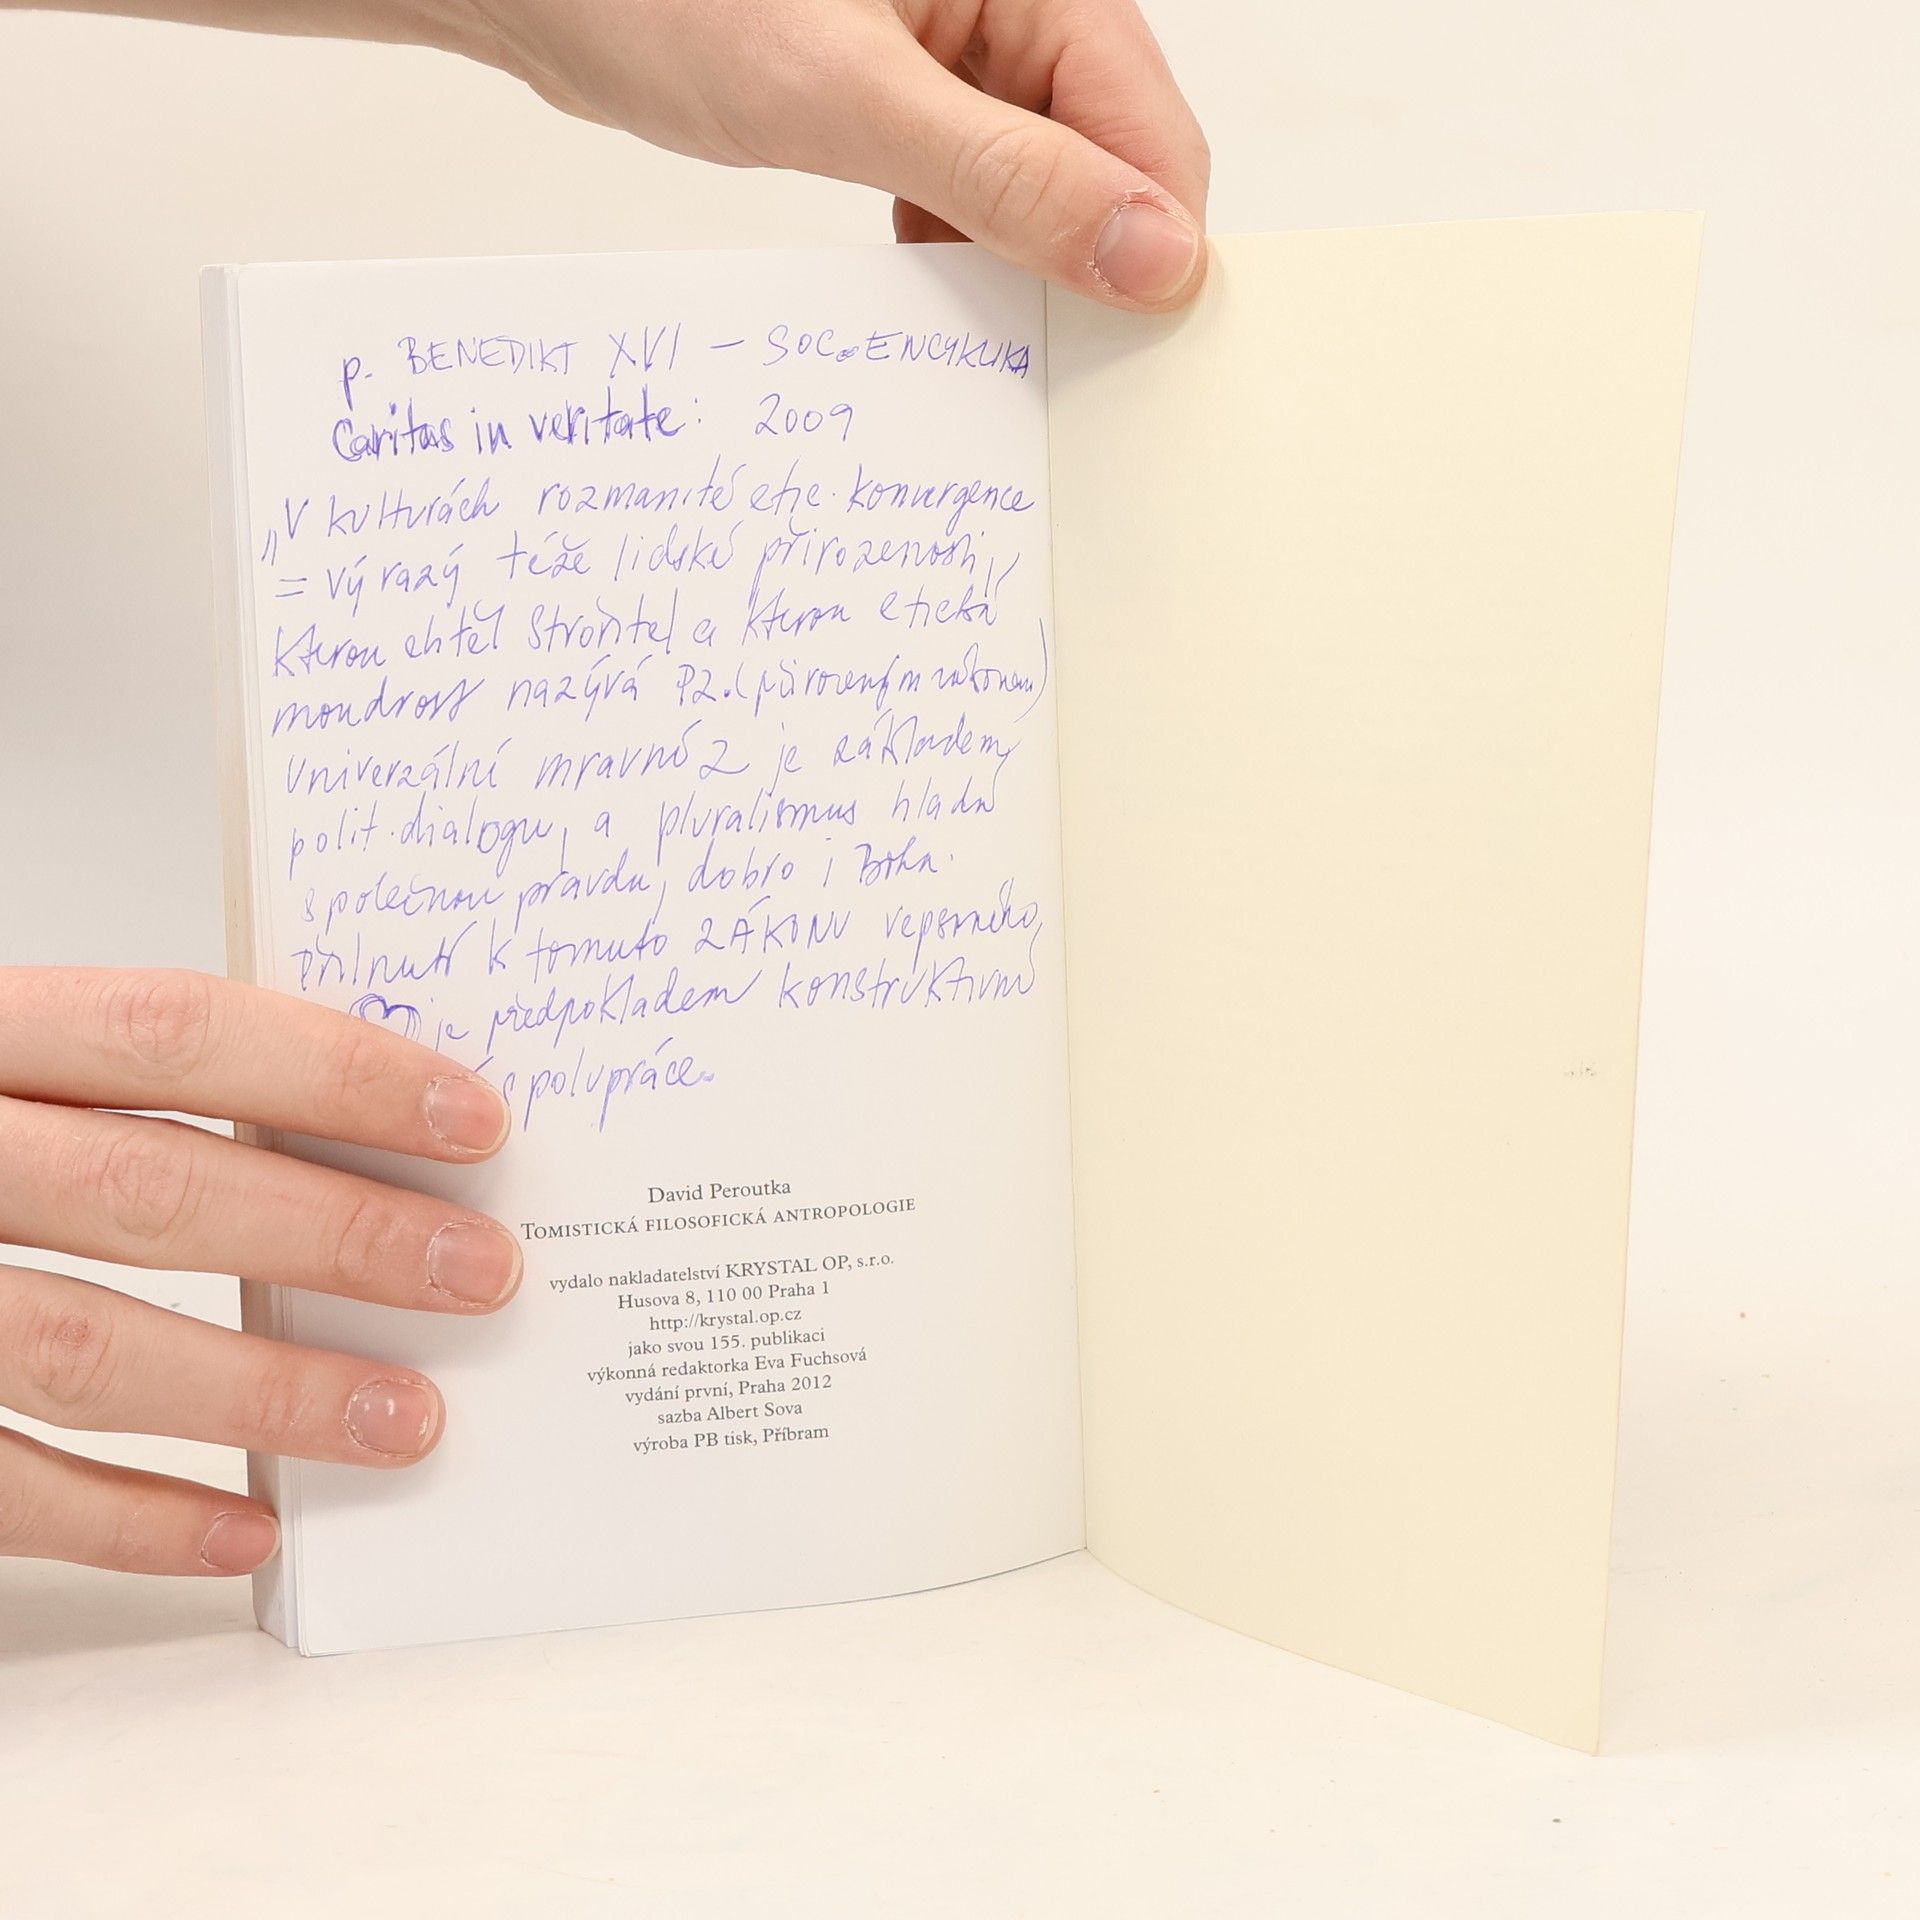 p. BENEDIKT XVI – SOC. ENCYKLIKA
Caritas in veritate: 2009
„V kulturách rozmanité etic. konvergence
= výrazy téže lidské přirozenosti,
kterou chtěl Stvořitel a kterou etická
moudrost nazývá PZ. (přirozeným zákonem)
Univerzální mravní Z je základem
polit. dialogu, a pluralismus hledá
společnou pravdu, dobro i Boha.
Přilnutí k tomuto ZÁKONU vepsaného
je předpokladem konstruktivní
spolupráce.
David Peroutka
TOMISTICKÁ FILOSOFICKÁ ANTROPOLOGIE
vydalo nakladatelství KRYSTAL OP, s.r.o.
Husova 8, 110 00 Praha 1
http://krystal.op.cz
jako svou 155. publikaci
výkonná redaktorka Eva Fuchsová
vydání první, Praha 2012
sazba Albert Sova
výroba PB tisk, Příbram